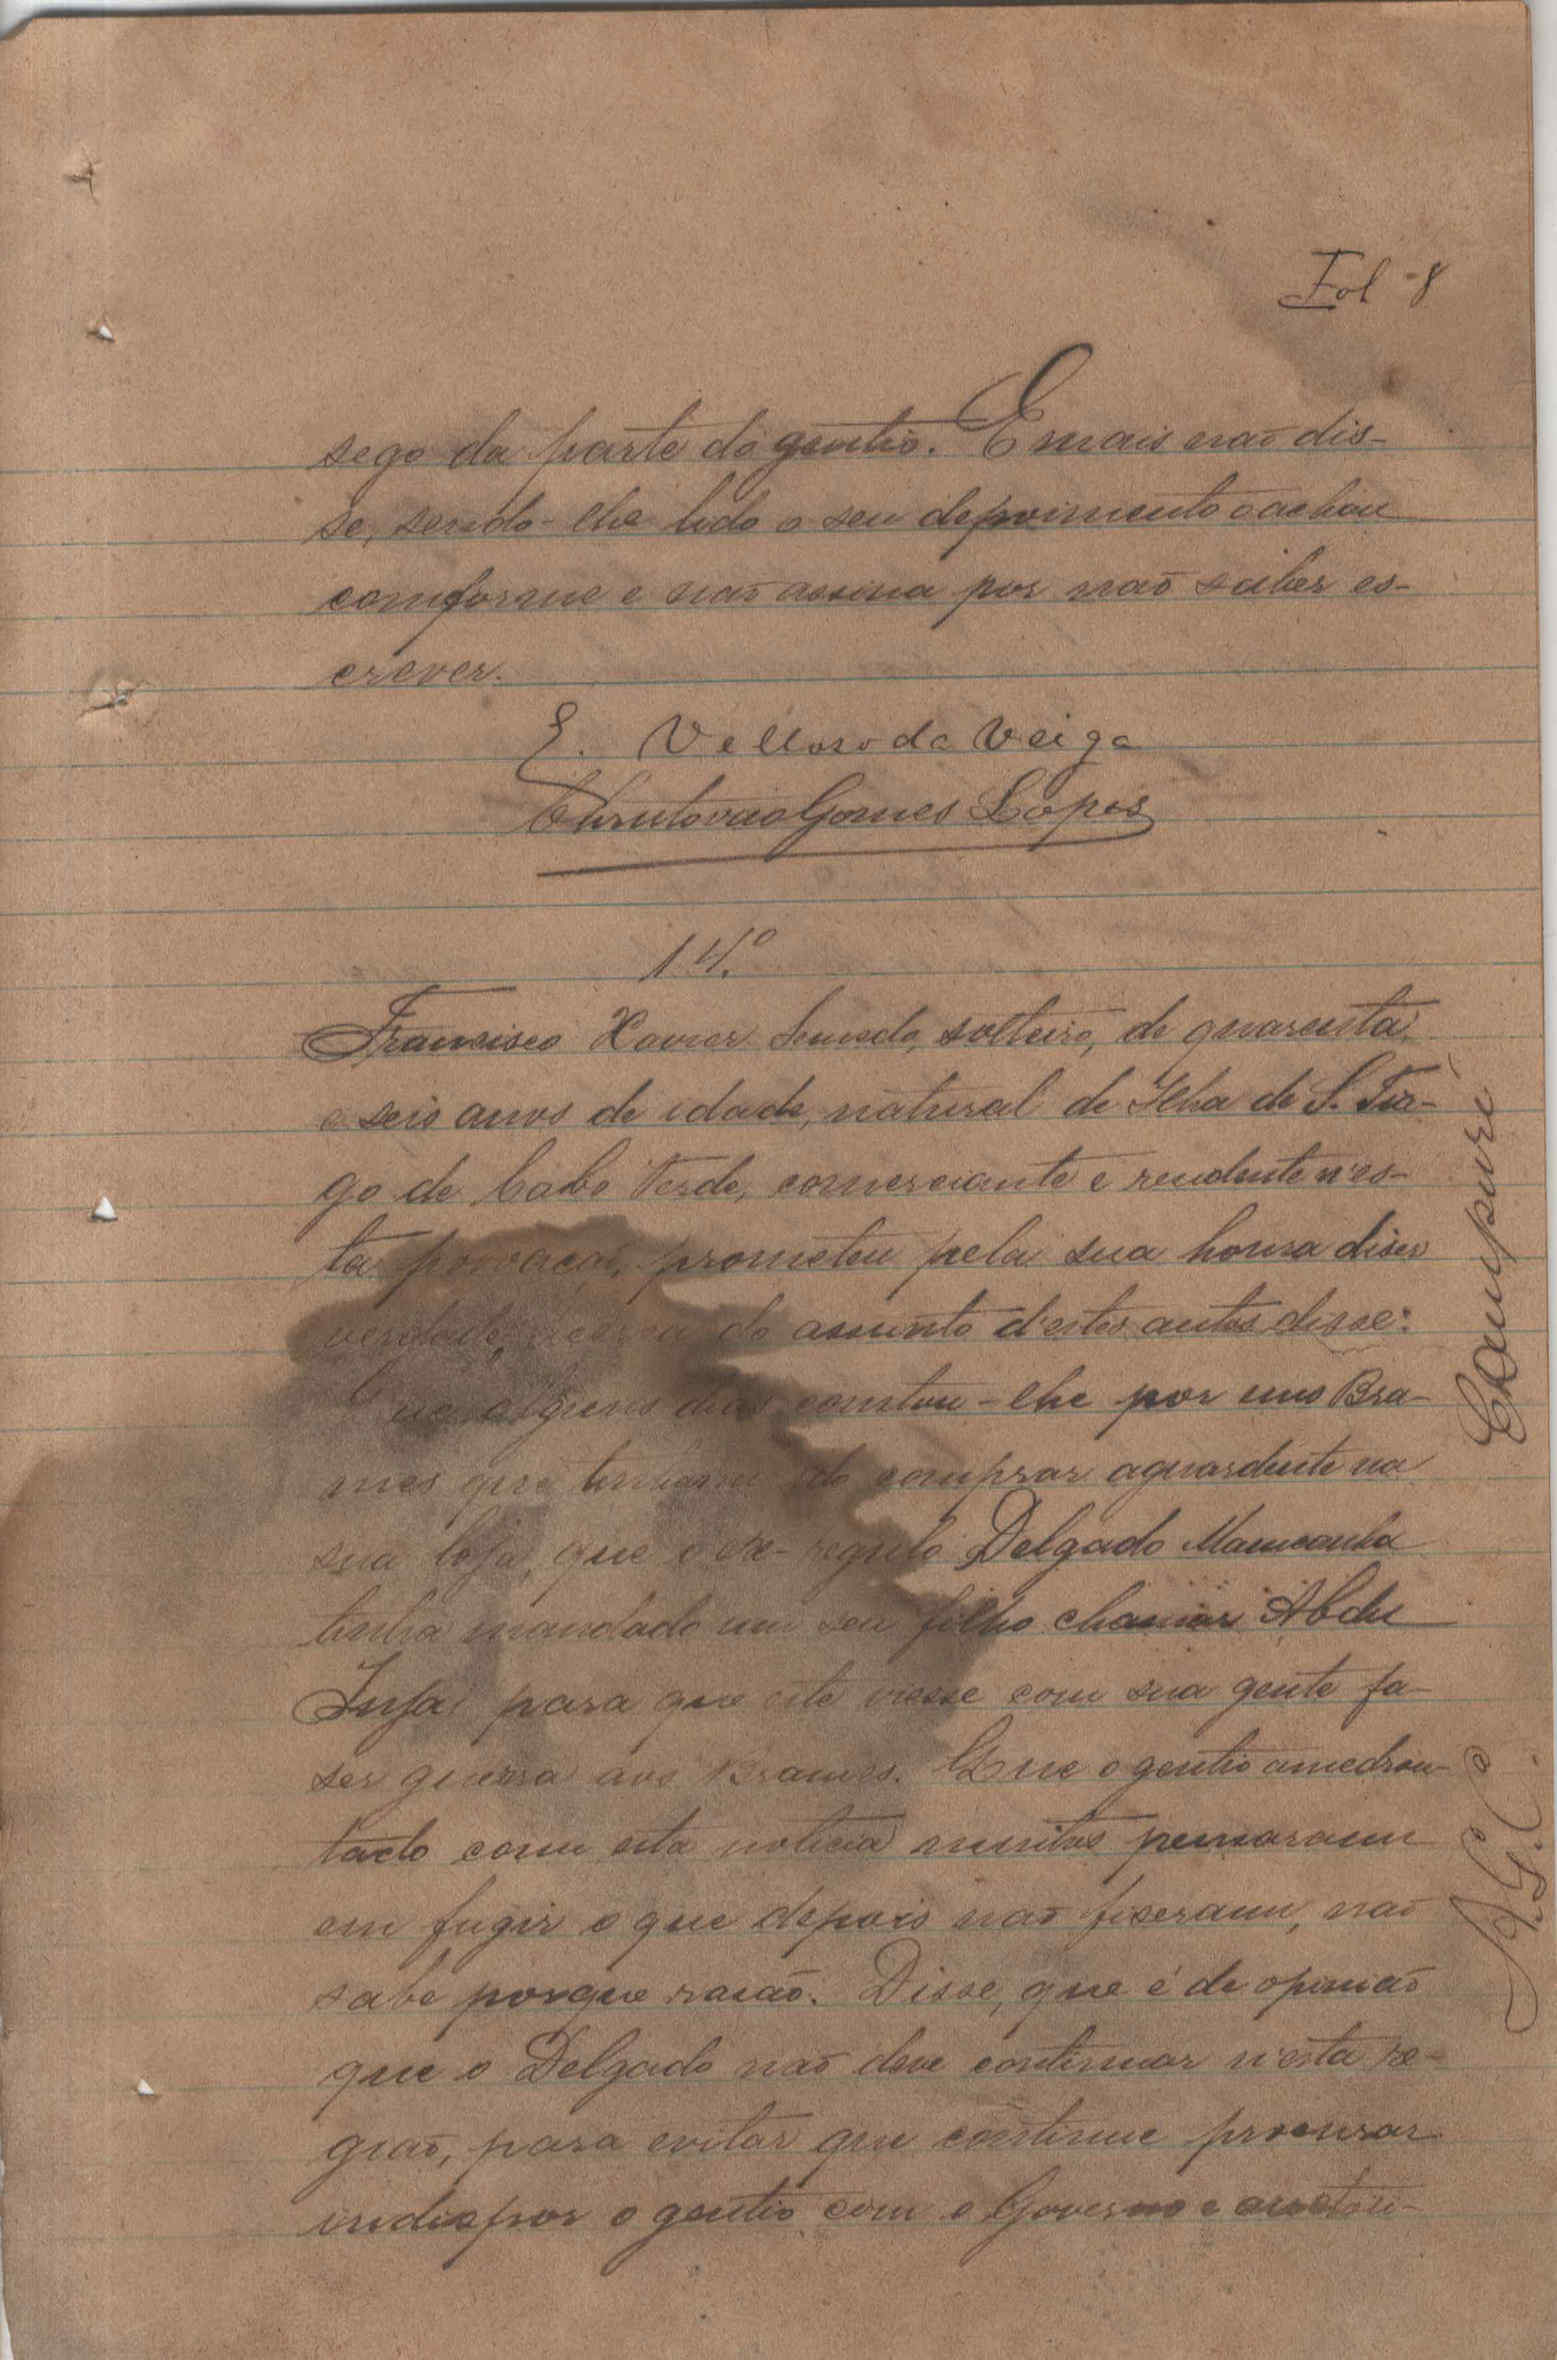 Fol - 8
sego da parte do gentio. E mais não dis-
se, sendo-lhe lido o seu depoimento o achou
comforme e não assina por não saber es-
crever.
E. Velloso da Veiga
Christovão Gomes Lopes
14.º
Francisco Xavier Semedo, solteiro, de quarenta
e seis anos de idade, natural de Ilha de S. Tia-
go de Cabo Verde, comerciante e residente n'es-
ta povoação, prometeu pela sua honra diser
verdade, acerca do assunto d'estes autos disse:
Que alguns dias constou-lhe por uns Bra-
mes que tinham ido comprar aguardente na
sua loja, que o ex-regulo Delgado Mamcanha
tinha mandado um seu filho chamar Abdu
Injai para que este viesse com sua gente fa-
ser guerra aos Brames. Que o gentio amedron-
tado com esta noticia muitos pensaram
em fugir o que depois não fiseram, não
sabe porque rasão. Disse, que é de opinião
que o Delgado não deve continuar n'esta re-
gião, para evitar que continue procurar
indispor o gentio com o Governo e autori-
Campuré
A. G. C.